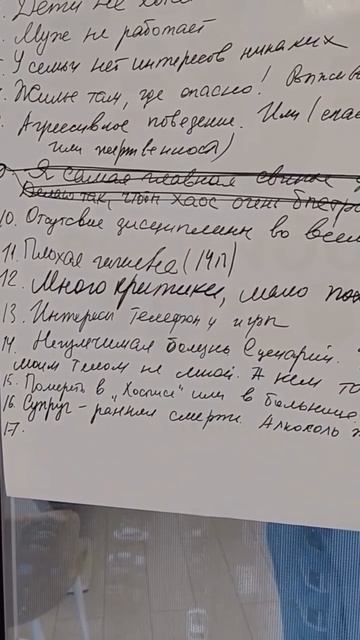 Дети не
Муж не работает
У семьи нет интересов никаких
Жильё там, где опасно!
Агрессивное поведение. Или (спас
или жертвенност)
Я самая главная
Делаю так, чтоб хаос очень быстро
10. Отсутствие дисциплины во всём
11. Плохая гигиена (14П)
12. Много критики, мало пох
13. Интересы телефон и игры
14. Неизлечимая болезнь Сценарий.
моим телом не мной. А кем то
15. Помереть в "Хоспис" или в больнице
16. Супруг - ранняя смерть. Алкоголь
17.